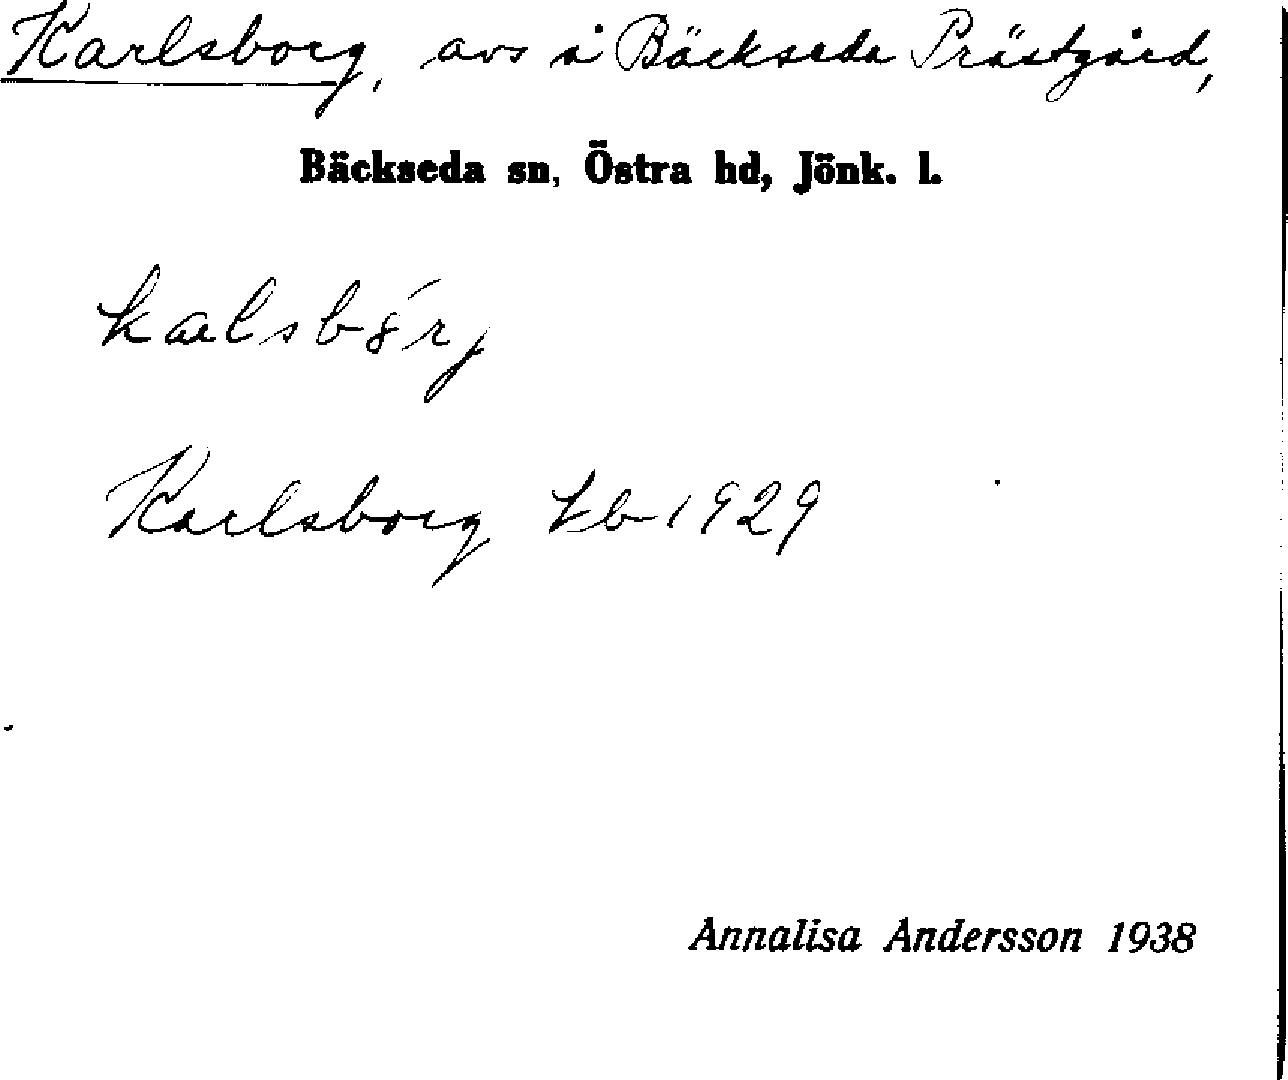 Karlsborg, avs å Bäckseda Prästgård,
Bäckseda sn, Östra hd, Jönk. l.
Karlsborg Jb 1929
Annalisa Andersson 1938